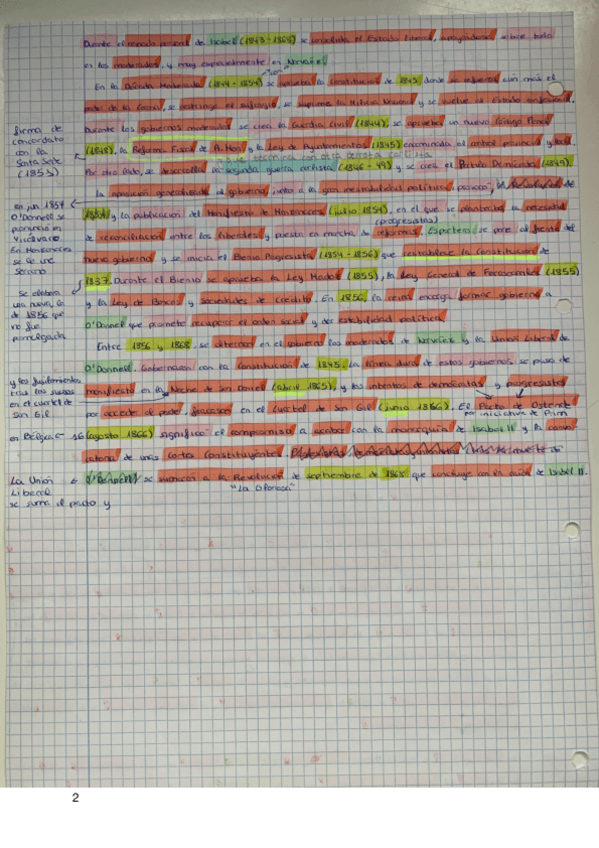 Durante el reinado personal de Isabel (1843-1868) se consolida el Estado liberal, apoyándose sobre todo
en los moderados, y muy especialmente en Narváez.
En la Década Moderada (1844-1854) se aprueba la Constitución de 1845 donde se refuerza aún más el
poder de la Corona, se restringe el sufragio, se suprime la Milicia Nacional y se vuelve al Estado confesional.
firma de
concordato
con la
Santa Sede
(1853)
Durante los gobiernos moderados se crea la Guardia Civil (1844), se aprueba un nuevo Código Penal
(1848), la Reforma Fiscal de A. Mon y la Ley de Ayuntamientos (1845) encaminada al control provincial y local.
que termina con otra derrota carlista
Por otro lado, se desarrolla la segunda guerra carlista (1846-49) y se crea el Partido Demócrata (1849).
La oposición generalizada al gobierno, junto a la gran inestabilidad política, provoca
en jun 1854
O'Donnell se
pronuncia en
Vicálvaro.
En Manzanares
se le une
Serrano
1854 y la publicación del Manifiesto de Manzanares (julio 1854), en el que se planteaba la necesidad
(progresistas)
de reconciliación entre los liberales y puesta en marcha de reformas. Espartero se pone al frente del
nuevo gobierno y se inicia el Bienio Progresista (1854-1856) que restablece la Constitución de
1837. Durante el Bienio se aprueba la Ley Madoz (1855), la Ley General de Ferrocarriles (1855)
Se elabora
una nueva, la
de 1856 que
no fue
promulgada
y la Ley de Bancos y Sociedades de Crédito. En 1856, la reina encarga formar gobierno a
O'Donnell que promete recuperar el orden social y dar estabilidad política.
Entre 1856 y 1868, se alternan en el gobierno los moderados de Narváez y la Unión Liberal de
O'Donnell. Gobernaron con la Constitución de 1845. La línea dura de estos gobiernos se puso de
y los fusilamientos
tras los sucesos
en el cuartel de
San Gil
manifiesto en la Noche de San Daniel (abril 1865), y los intentos de demócratas y progresistas
por acceder al poder, fracasan en el Cuartel de San Gil (junio 1866). El Pacto de Ostende
por iniciativa de Prim
en Bélgica 16 (agosto 1866) significó el compromiso a acabar con la monarquía de Isabel II y la convo
catoria de unas Cortes Constituyentes.
La Unión
Liberal
se suma al pacto y
se suman a la Revolución de septiembre de 1868 que concluye con la de Isabel II.
"La Gloriosa"
2